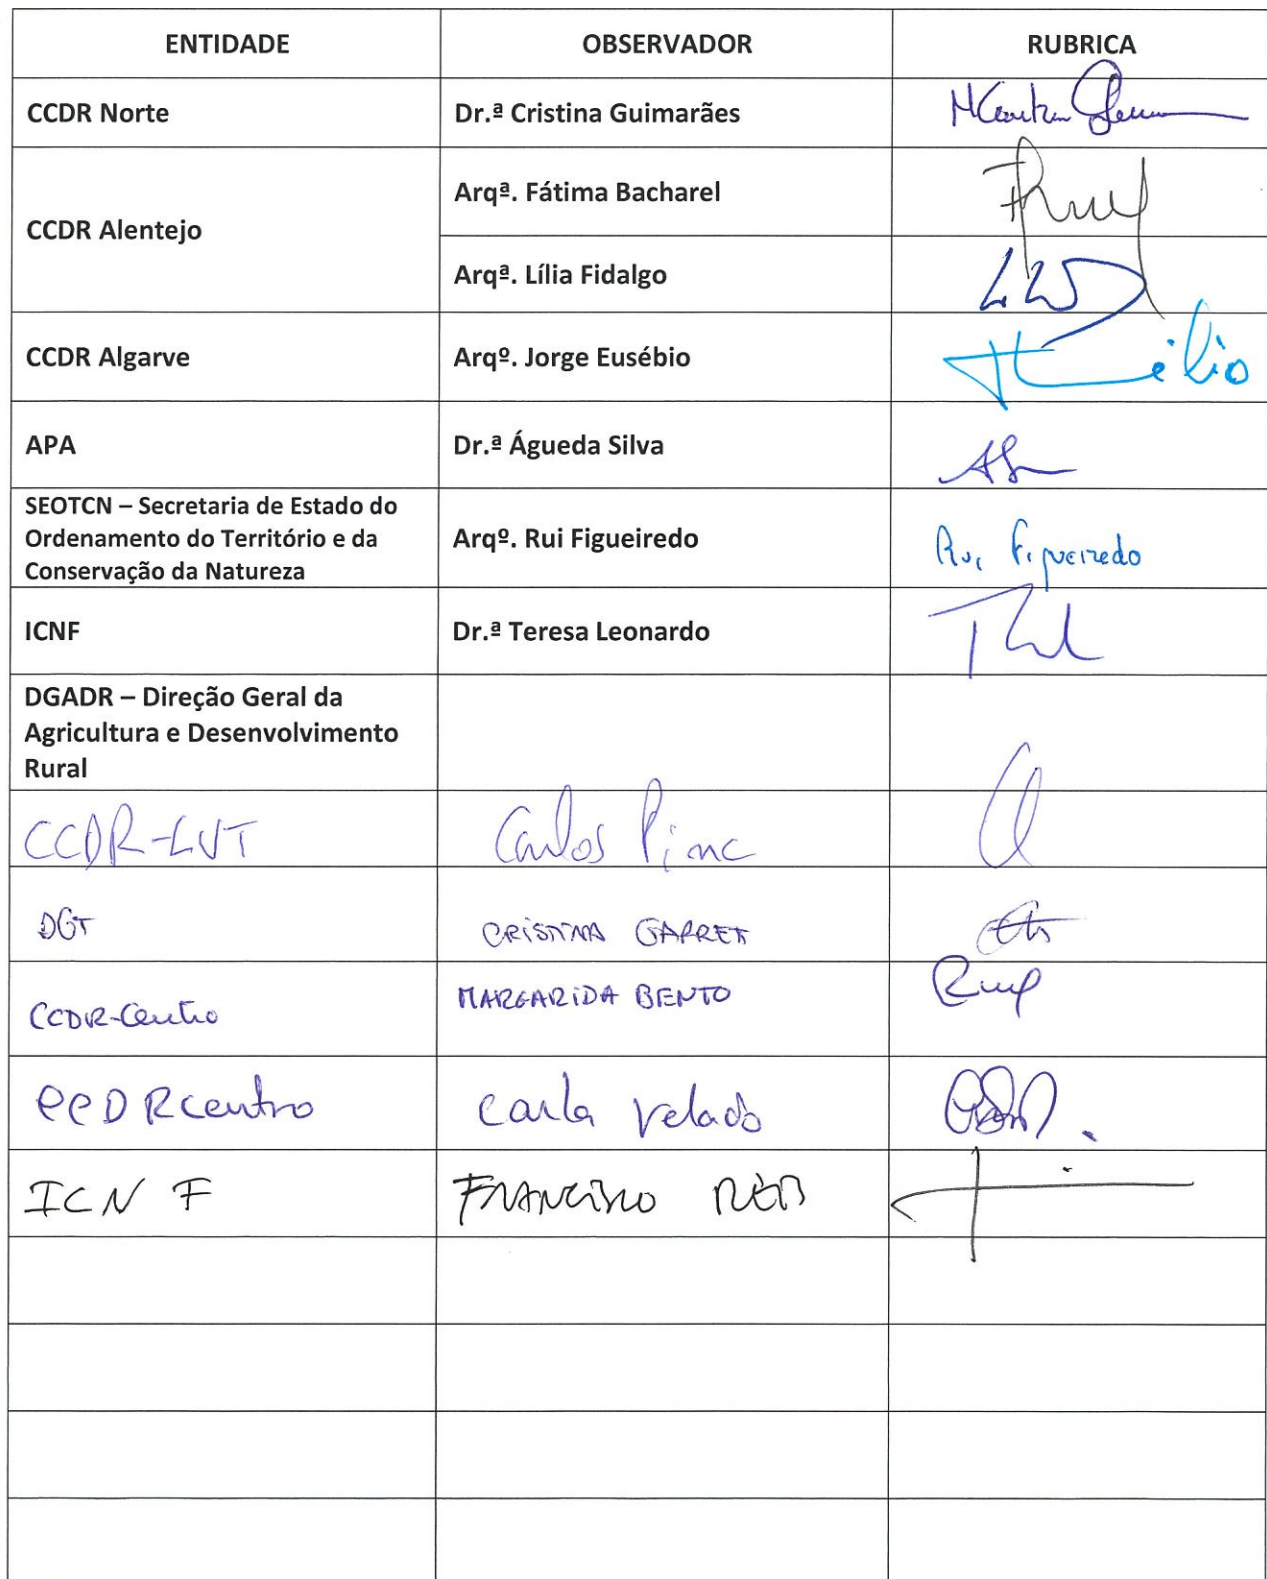 ENTIDADE OBSERVADOR RUBRICA
CCDR Norte Dr.ª Cristina Guimarães
CCDR Alentejo Arqª. Fátima Bacharel
Arqª. Lília Fidalgo
CCDR Algarve Arqº. Jorge Eusébio
APA Dr.ª Águeda Silva
SEOTCN – Secretaria de Estado do
Ordenamento do Território e da
Conservação da Natureza
Arqº. Rui Figueiredo Rui Figueiredo
ICNF Dr.ª Teresa Leonardo
DGADR – Direção Geral da
Agricultura e Desenvolvimento
Rural
CCDR-LVT Carlos Pina
DGT CRISTINA GARRET
CCDR-Centro MARGARIDA BENTO
CCDRcentro Carla Velado
ICNF FRANCISCO REIS